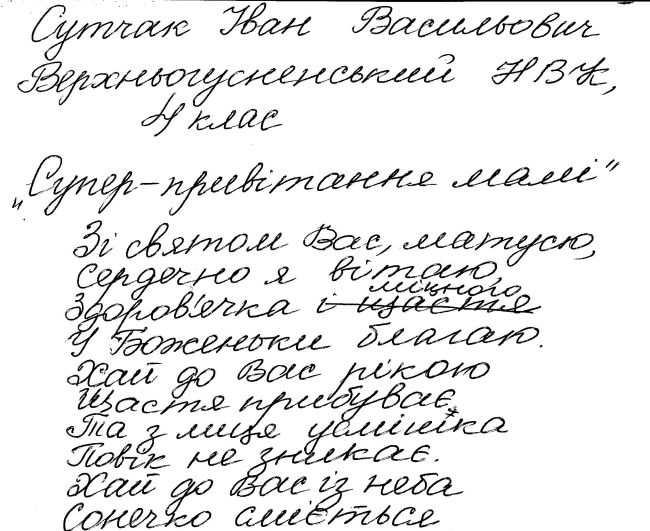 Сутчак Іван Васильович
Верхньогусненський НВК,
4 клас
„Супер-привітання мамі"
Зі святом Вас, матусю,
Сердечно я вітаю,
міцного
Здоров'ячка і щастя
У Боженьки благаю.
Хай до Вас рікою
Щастя прибуває,
Та з лиця усмішка
Повік не зникає.
Хай до Вас із неба
Сонечко сміється